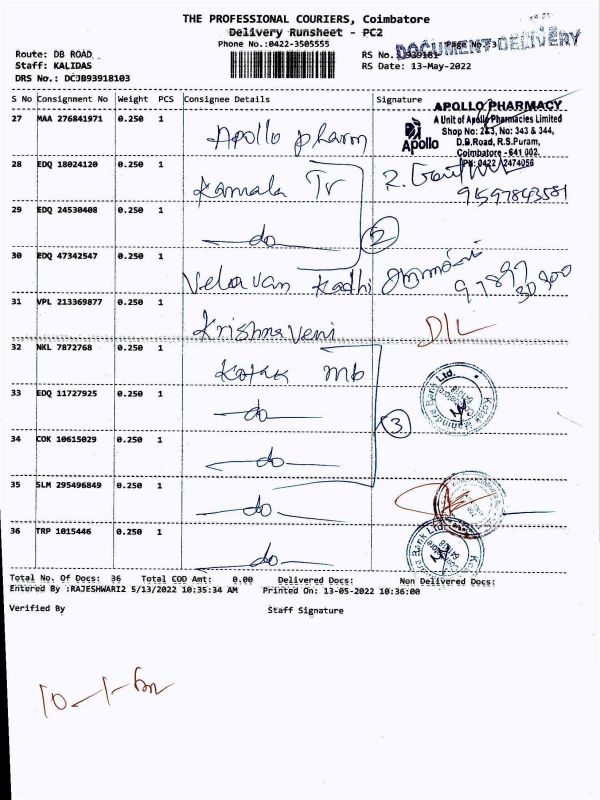 THE PROFESSIONAL COURIERS, Coimbatore
Delivery Runsheet - PC2
Phone No.:0422-3505555
Page No.:3
DOCUMENT DELIVERY
Route: DB ROAD
Staff: KALIDAS
DRS No.: DCJB93918103
RS No.
RS Date: 13-May-2022
S No Consignment No Weight PCS Consignee Details Signature
APOLLO PHARMACY
A Unit of Apollo Pharmacies Limited
Shop No: 2&3, No: 343 & 344,
D.B.Road, R.S.Puram,
Coimbatore - 641 002.
PH: 0422 2474056
Apollo
27 MAA 276841971 0.250 1 Apollo pharm
28 EDQ 18024120 0.250 1 Kamala Tr
9597843581
29 EDQ 24530408 0.250 1 do 2
30 EDQ 47342547 0.250 1 Velavan Kadhi
97897
30300
31 VPL 213369877 0.250 1 Krishnaveni D/L
32 NKL 7872768 0.250 1 Kotak mb
33 EDQ 11727925 0.250 1 do 3
34 COK 10615029 0.250 1 do
35 SLM 295496849 0.250 1 do
36 TRP 1015446 0.250 1 do
Total No. Of Docs: 36 Total COD Amt: 0.00 Delivered Docs: Non Delivered Docs:
Entered By :RAJESHWARI2 5/13/2022 10:35:34 AM Printed On: 13-05-2022 10:36:00
Verified By Staff Signature